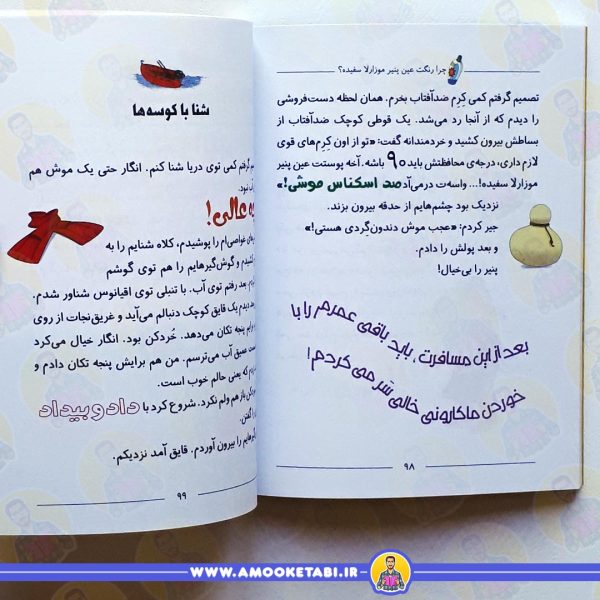 چرا رنگت عین پنیر موزارلا سفیده؟
تصمیم گرفتم کمی کِرِم ضدآفتاب بخرم. همان لحظه دست‌فروشی
را دیدم که از آنجا رد می‌شد. یک قوطی کوچک ضدآفتاب از
بساطش بیرون کشید و خردمندانه گفت: «تو از اون کِرِم‌های قوی
لازم داری، درجه‌ی محافظتش باید ۹۰ باشه. آخه پوستت عین پنیر
موزارلا سفیده!... واسه‌ت درمی‌آد صد اسکناس موشی!»
نزدیک بود چشم‌هایم از حدقه بیرون بزند.
جیر کردم: «عجب موش دندون‌گردی هستی!»
و بعد پولش را دادم.
پنیر را بی‌خیال!
بعد از این مسافرت، باید باقی عمرم را با
خوردن ماکارونی خالی سَر می‌کردم!
۹۸
شنا با کوسه‌ها
گرفتم کمی توی دریا شنا کنم. انگار حتی یک موش هم
نبود.
عالی!
غواصی‌ام را پوشیدم، کلاه شنایم را به
و گوش‌گیرهایم را هم توی گوشم
بعد رفتم توی آب. با تنبلی توی اقیانوس شناور شدم.
دیدم یک قایق کوچک دنبالم می‌آید و غریق‌نجات از روی
برایم پنجه تکان می‌دهد. خُردکن بود. انگار خیال می‌کرد
عمیق آب می‌ترسم. من هم برایش پنجه تکان دادم و
که یعنی حالم خوب است.
باز هم ولم نکرد. شروع کرد با داد و بیداد
گفتن.
را بیرون آوردم. قایق آمد نزدیکم.
۹۹
WWW.AMOOKETABI.IR